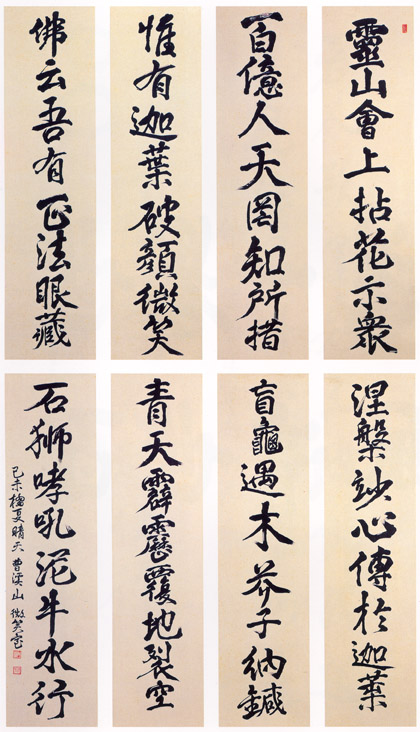 靈山會上拈花示衆
百億人天罔知所措
惟有迦葉破顔微笑
佛云吾有正法眼藏
涅槃竗心傳於迦葉
盲龜遇木芥子納鍼
青天霹靂覆地裂空
石獅哮吼泥牛水行
己未榴夏晴天 曹溪山 微笑室